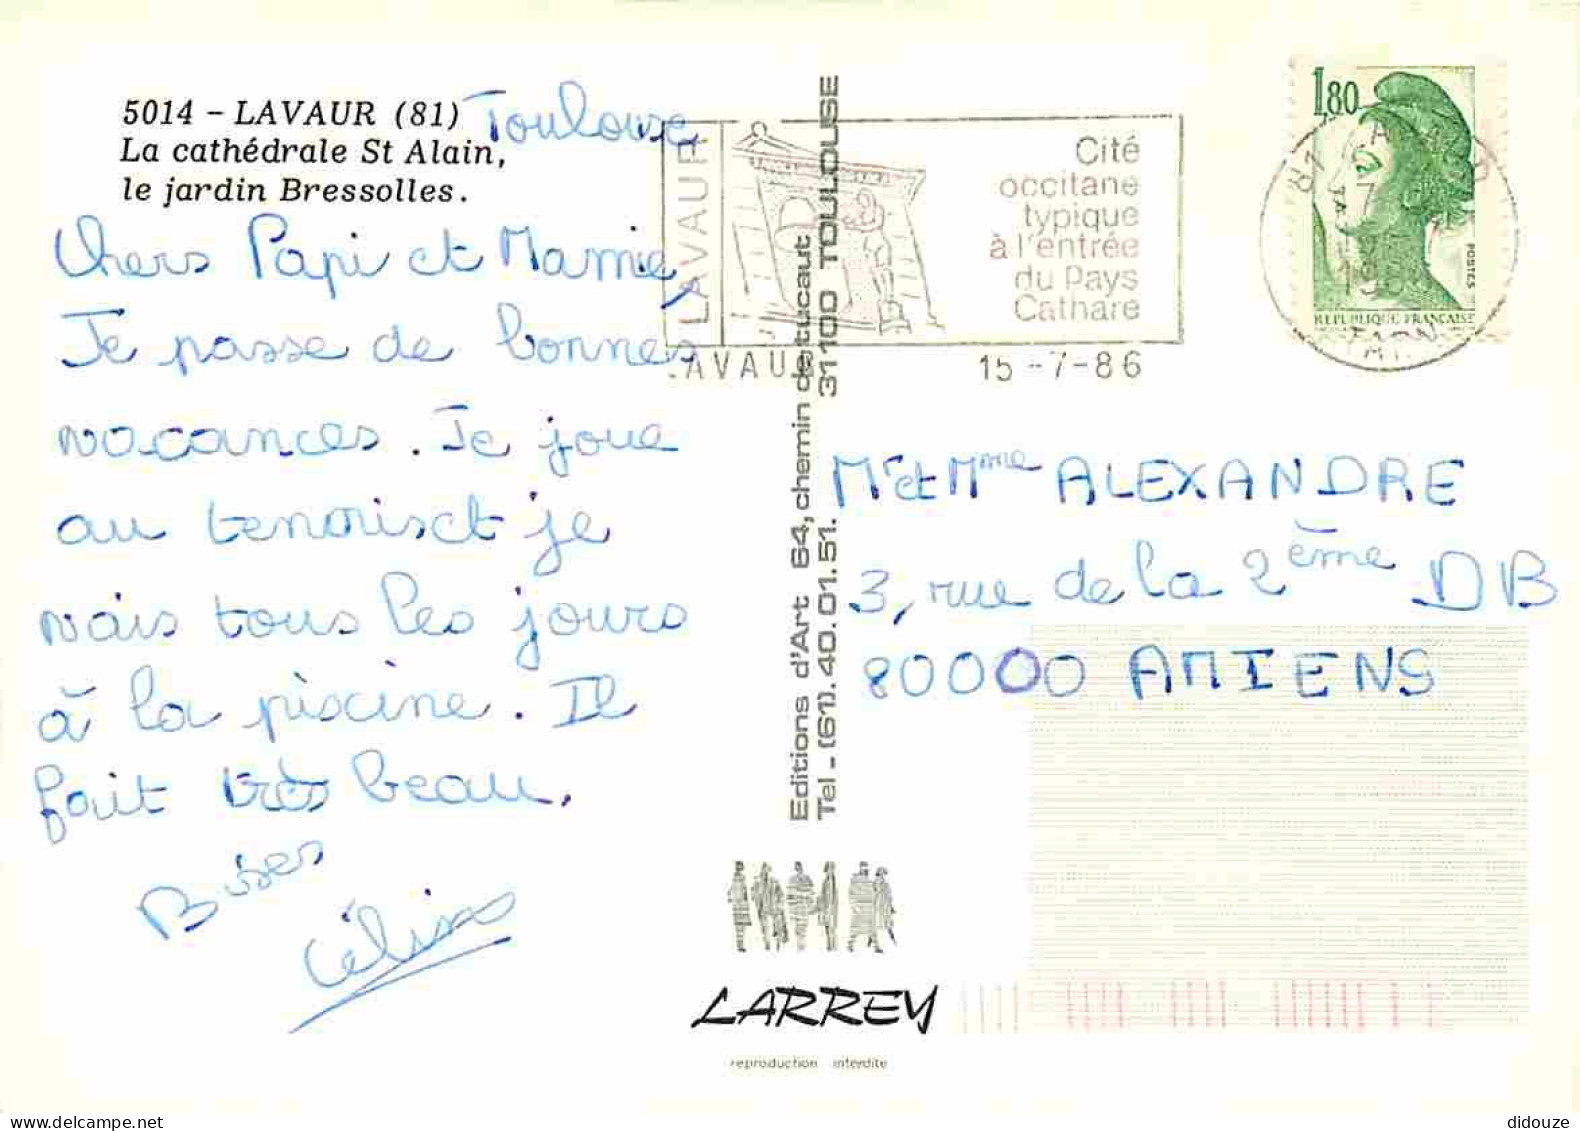 5014 - LAVAUR (81)
La cathédrale St Alain,
le jardin Bressolles.
Toulouse
Chers Papi et Mamie,
Je passe de bonnes
vacances. Je joue
au tennis et je
vais tous les jours
à la piscine. Il
fait très beau.
Bises
Céline
Editions d'Art 64, chemin de tucaut 31100 TOULOUSE
Tel - (61). 40. 01. 51.
LARREY
reproduction interdite
LAVAUR
Cité
occitane
typique
à l'entrée
du Pays
Cathare
LAVAUR 15-7-86
1,80
POSTES
REPUBLIQUE FRANÇAISE
81
TARN
Mr et Mme ALEXANDRE
3, rue de la 2ème DB
80000 AMIENS
didouze